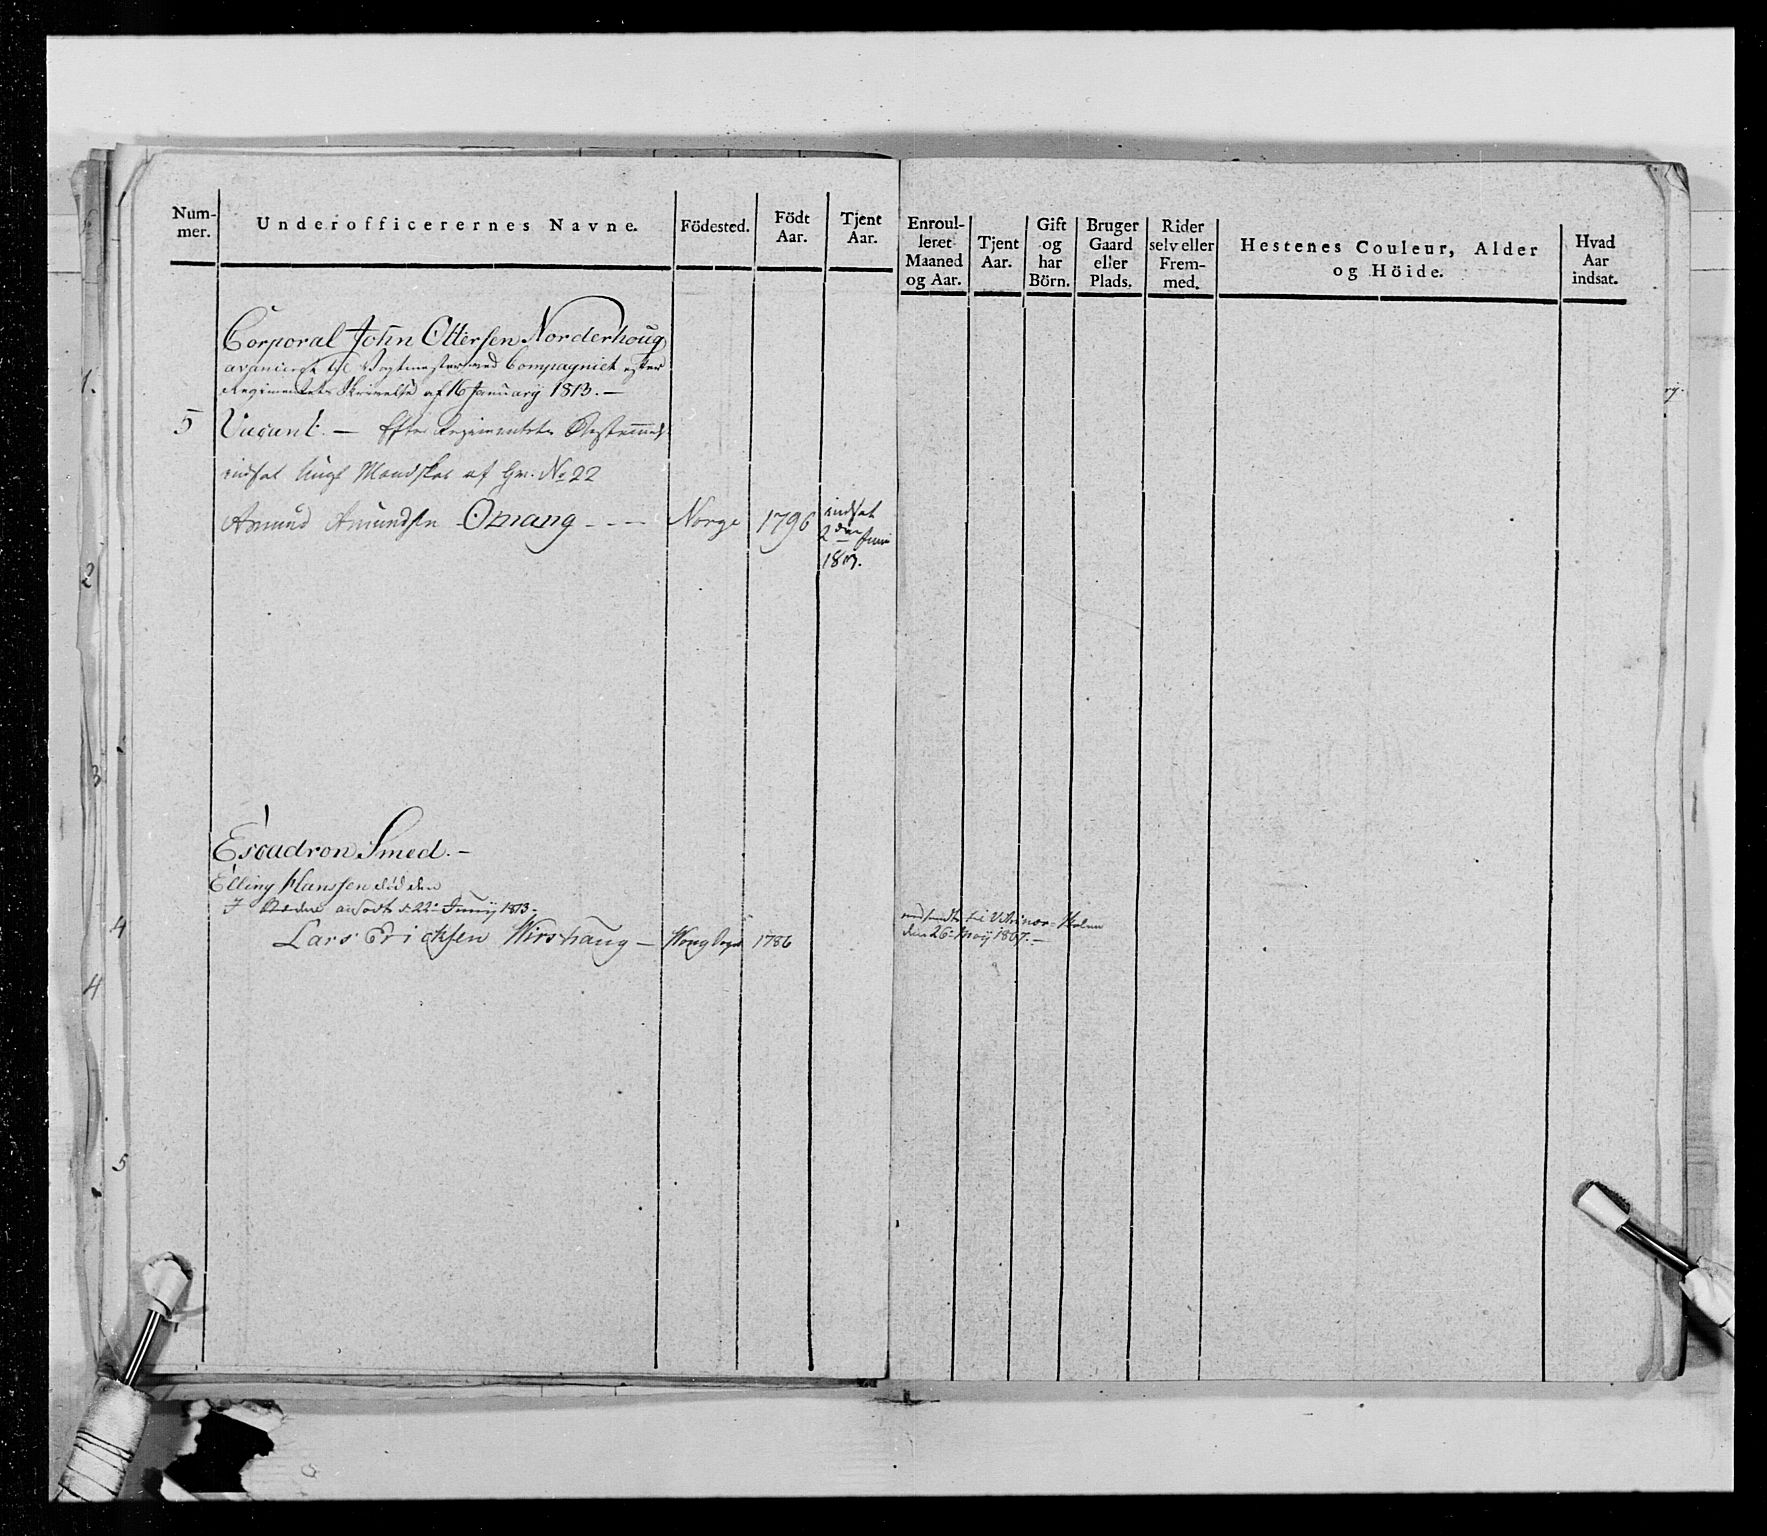 Num-
mer.
Underofficerernes Navne.
Födested.
Födt
Aar.
Tjent
Aar.
Enroul-
leret
Maaned
og Aar.
Tjent
Aar.
Gift
og
har
Börn.
Bruger
Gaard
eller
Plads.
Rider
selv eller
Frem-
med.
Hestenes Couleur, Alder
og Höide.
Hvad
Aar
indsat.
Corporal John Ottersen Norderhoug
avanceret til Vagtmester ved Compagniet efter
Regimentets Skrivelse af 16 January 1813. —
5 Vacant. — Efter Regimentets
indsat Mandskab af No 22
Amund Amundsen Omang - - - Norge 1796 indsat
2den Juni
1813.
Escadron Smed. —
Elling Hanssen död den
ansadt d 22 Junij 1813 -
Lars Ericksen Wirshaug — 1786
den 26 Maij 1807. —
1.
2
3
4
4
5